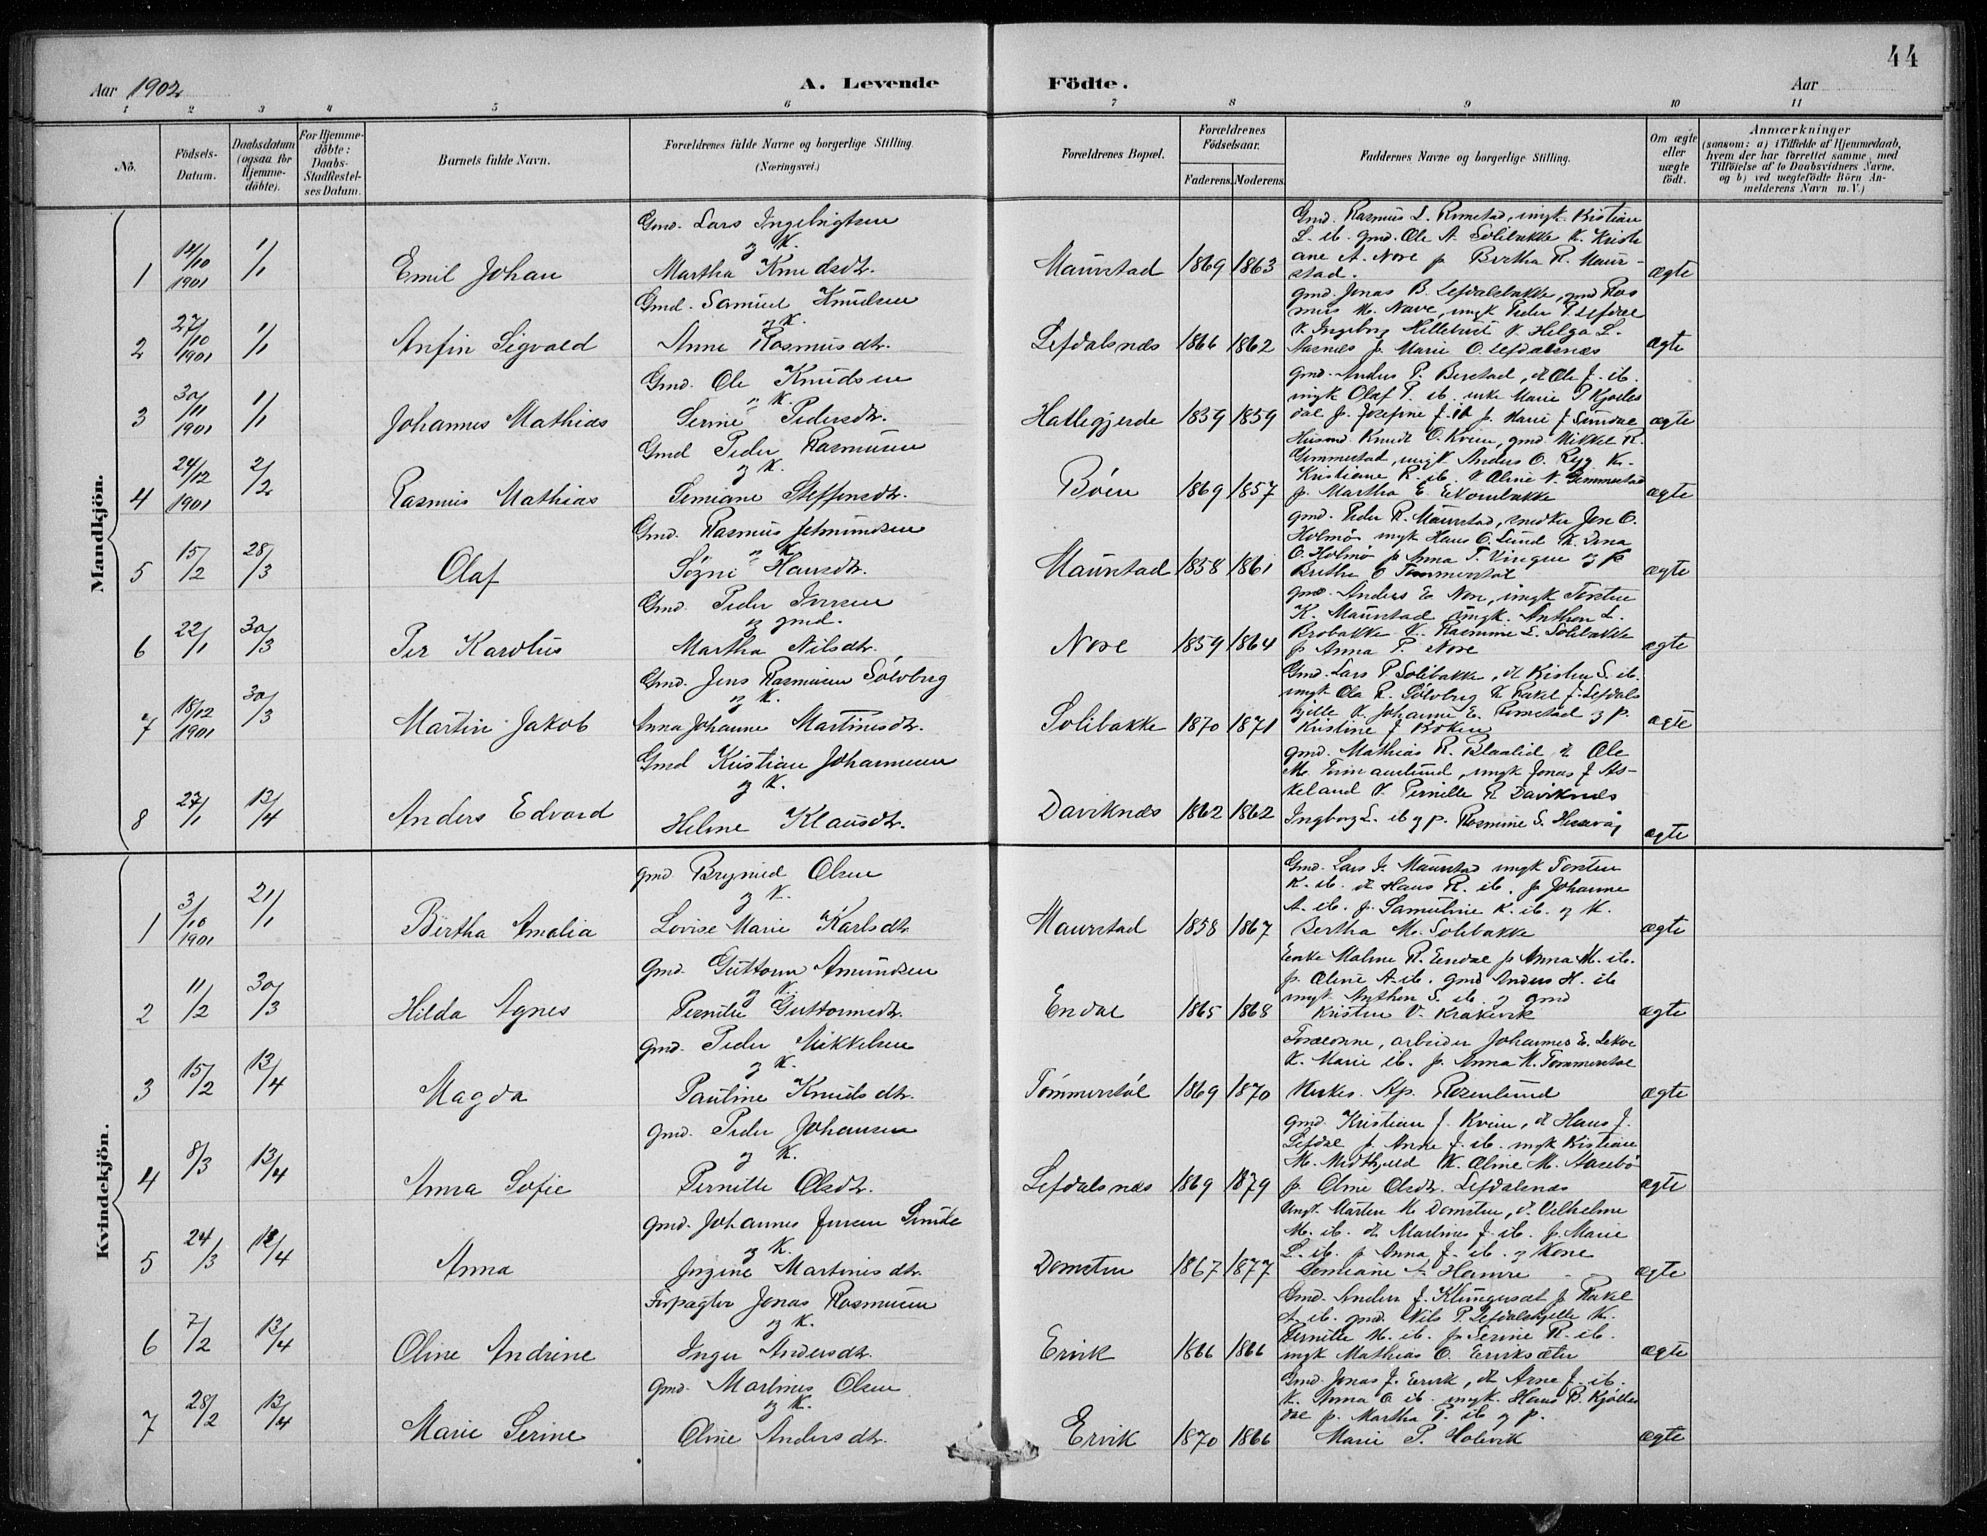 44
Aar 1902
A. Levende
Födte.
Aar
1 2 3 4 5 6 7 8 9 10 11
No.
Födsels-
Datum.
Daabsdatum
(ogsaa for
Hjemme-
döbte).
For Hjemme-
döbte:
Daabs-
Stadfæstel-
ses Datum.
Barnets fulde Navn.
Forældrenes fulde Navne og borgerlige Stilling
(Næringsvei.)
Forældrenes Bopæl.
Forældrenes
Födselsaar.
Faderens. Moderens.
Faddernes Navne og borgerlige Stilling.
Om ægte
eller
uægte
födt.
Anmærkninger
(saasom: a) i Tilfælde af Hjemmedaab,
hvem der har forrettet samme, med
Tilföielse af to Daabsvidners Navne,
og b) ved uægtefödte Börn An-
melderens Navn m. V.)
Mandkjön.
1 14/10 1901 1/1 Emil Johan
Gmd. Lars Ingebrigtsen
og K.
Martha Knudsdtr.
Maurstad 1869 1863
Gmd. Rasmus L. Rimstad, ungk. Kristian
L. ib. gmd. Ole A. Solibakke K. Kristi
ane A. Nore p Bertha R. Maur-
stad.
ægte
2 27/10 1901 1/1 Anfin Sigvald
Gmd. Samuel Knudsen
og K.
Anne Rasmusdtr.
Lefdalsnæs 1866 1862
gmd. Jonas B. Lefdalsbakke, gmd Ras
mus M. Nave, ungk Peder P. Lefdal
K Ingeborg K Helga L.
p. Marie O. Lefdalsnæs
ægte
3 30/11 1901 1/1 Johannes Mathias
Gmd. Ole Knudsen
og K.
Serine Pedersdtr.
Hallegjerde 1859 1859
gmd. Anders P. Berstad, d Ole J. ib.
ungk Olaf P. ib. enke Marie P Kjölles
dal p. Josefine J. ib p. Marie J Sundal
ægte
4 24/12 1901 2/2 Rasmus Mathias
Gmd Peder Rasmusen
og K.
Semiane Steffensdtr.
Böen 1869 1857
Husmd Knud O. Kvien, gmd Mikkel R.
Gimmestad, ungk Anders O. Ryg K.
Kristiane R. ib. K Oline N. Gimmestad
p. Martha E.
ægte
5 15/2 28/3 Olaf
Gmd. Rasmus Jetmundsen
og K
Signi Hansdtr.
Maurstad 1858 1861
gmd. Peder R. Maurstad, snedker Jon O.
Holmö ungk Hans O. Lund K. Dina
O. Holmö p Anna T. Vingen og p
Brithe O Tömmerstöl
ægte
6 22/1 30/3 Per Karolus
Gmd. Peder Iversen
og gmd.
Martha Nilsdtr.
Nore 1859 1864
gmd. Anders E Nore, ungk Torsten
K. Maurstad ungk. Anthon L.
Brobakke K. Rasmine L. Solibakke
p Anna P. Nore
ægte
7 18/12 1901 30/3 Martin Jakob
Gmd. Jens Rasmusen Sölvberg
og K.
Anna Johanne Martinusdtr.
Solibakke 1870 1871
Gmd. Lars P Solibakke, d Kisten S. ib.
ungk Ola R. Sölvberg K Rakel J. Lefdals
hjelle K. Johanne E. Rimstad og p.
Kristine J
ægte
8 27/1 13/4 Anders Edvard
Gmd Kristian Johannesen
og K.
Helene Klausdtr.
Daviknæs 1862 1862
gmd. Mathias R. Blaalid, d Ole
M. ungk Jonas J As-
keland K Pernille R Daviknæs
Ingborg L. ib og p. Rasmine S.
ægte
Kvindekjön.
1 3/10 1901 21/1 Birtha Amalia
gmd Brynild Olsen
og K.
Lovise Marie Karlsdtr.
Maurstad 1858 1867
Gmd. Lars J. Maurstad ungk Torsten
K. ib. d Hans R. ib. p Johanne
A. ib. p. Samuline K. ib. og K.
Bertha M. Solibakke
ægte
2 11/2 30/3 Hilda Agnes
Gmd. Guttorm Amundsen
og K.
Pernille Guttormsdtr.
Endal 1865 1868
Enke Malene R. Endal p Anna M. ib.
p. Oline A. ib. gmd Anders H. ib
ungk. Anthon S. ib og gmd
Kristen V. Krakevik
ægte
3 15/2 13/4 Magda
Gmd. Peder Mikkelsen
og K.
Pauline Knudsdtr.
Tömmerstöl 1869 1870
Forældrene, arbeider Johannes E.
K. Marie ib. p. Anna M. Tömmerstöl
Rosenlund
ægte
4 8/3 13/4 Anna Sofie
gmd. Peder Johansen
og K.
Pernille Olsdtr.
Lefdalsnæs 1869 1879
gmd. Kristian J. Kvien, d Hans J.
Lefdal p. Anne J. ib. ungk Kristian
M. K. Oline M. Aasebö
p. Oline Olsdtr. Lefdalsnæs
ægte
5 24/3 13/4 Anna
gmd. Johannes Jensen Smide
og K.
Jörgine Martinisdtr.
Domsten 1867 1877
Ungk. Marten M Domsten, d. Vilhelm
M. ib. d Martinus J. ib. p. Marie
L. ib. p Anna J. ib. og Kone
Semiane A Hamre
ægte
6 7/2 13/4 Oline Andrine
Forpagter Jonas Rasmusen
og K.
Inger Andersdtr.
Ervik 1866 1866
Gmd. Anders J. p Rakel
A. ib. gmd. Nils P. Lefdalshjelle K.
Pernille M. ib. p Serine R. ib.
ungk Mathias O. Erviksæter
ægte
7 28/2 13/4 Marie Serine
Gmd. Martinus Olsen
og K.
Oline Andersdtr.
Ervik 1870 1866
Gmd. Jonas J. Ervik, d Arne J. ib.
K. Anna O ib. ungk. Hans B. Kjölles
dal p. Martha P. ib og p.
Marie P. Holevik
ægte